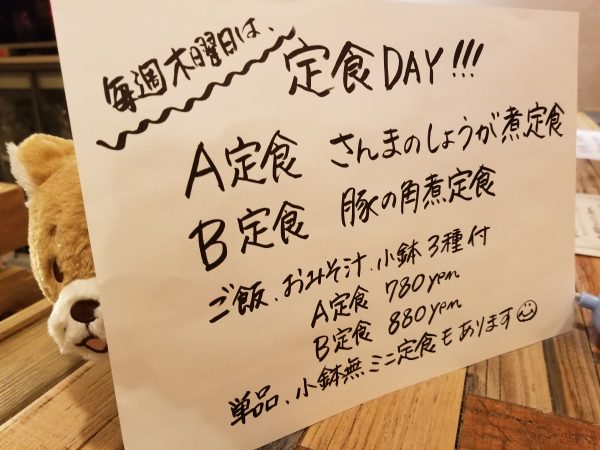 毎週木曜日は、
定食DAY!!!
A定食 さんまのしょうが煮定食
B定食 豚の角煮定食
ご飯、おみそ汁、小鉢3種付
A定食 780yen
B定食 880yen
単品、小鉢無ミニ定食もあります